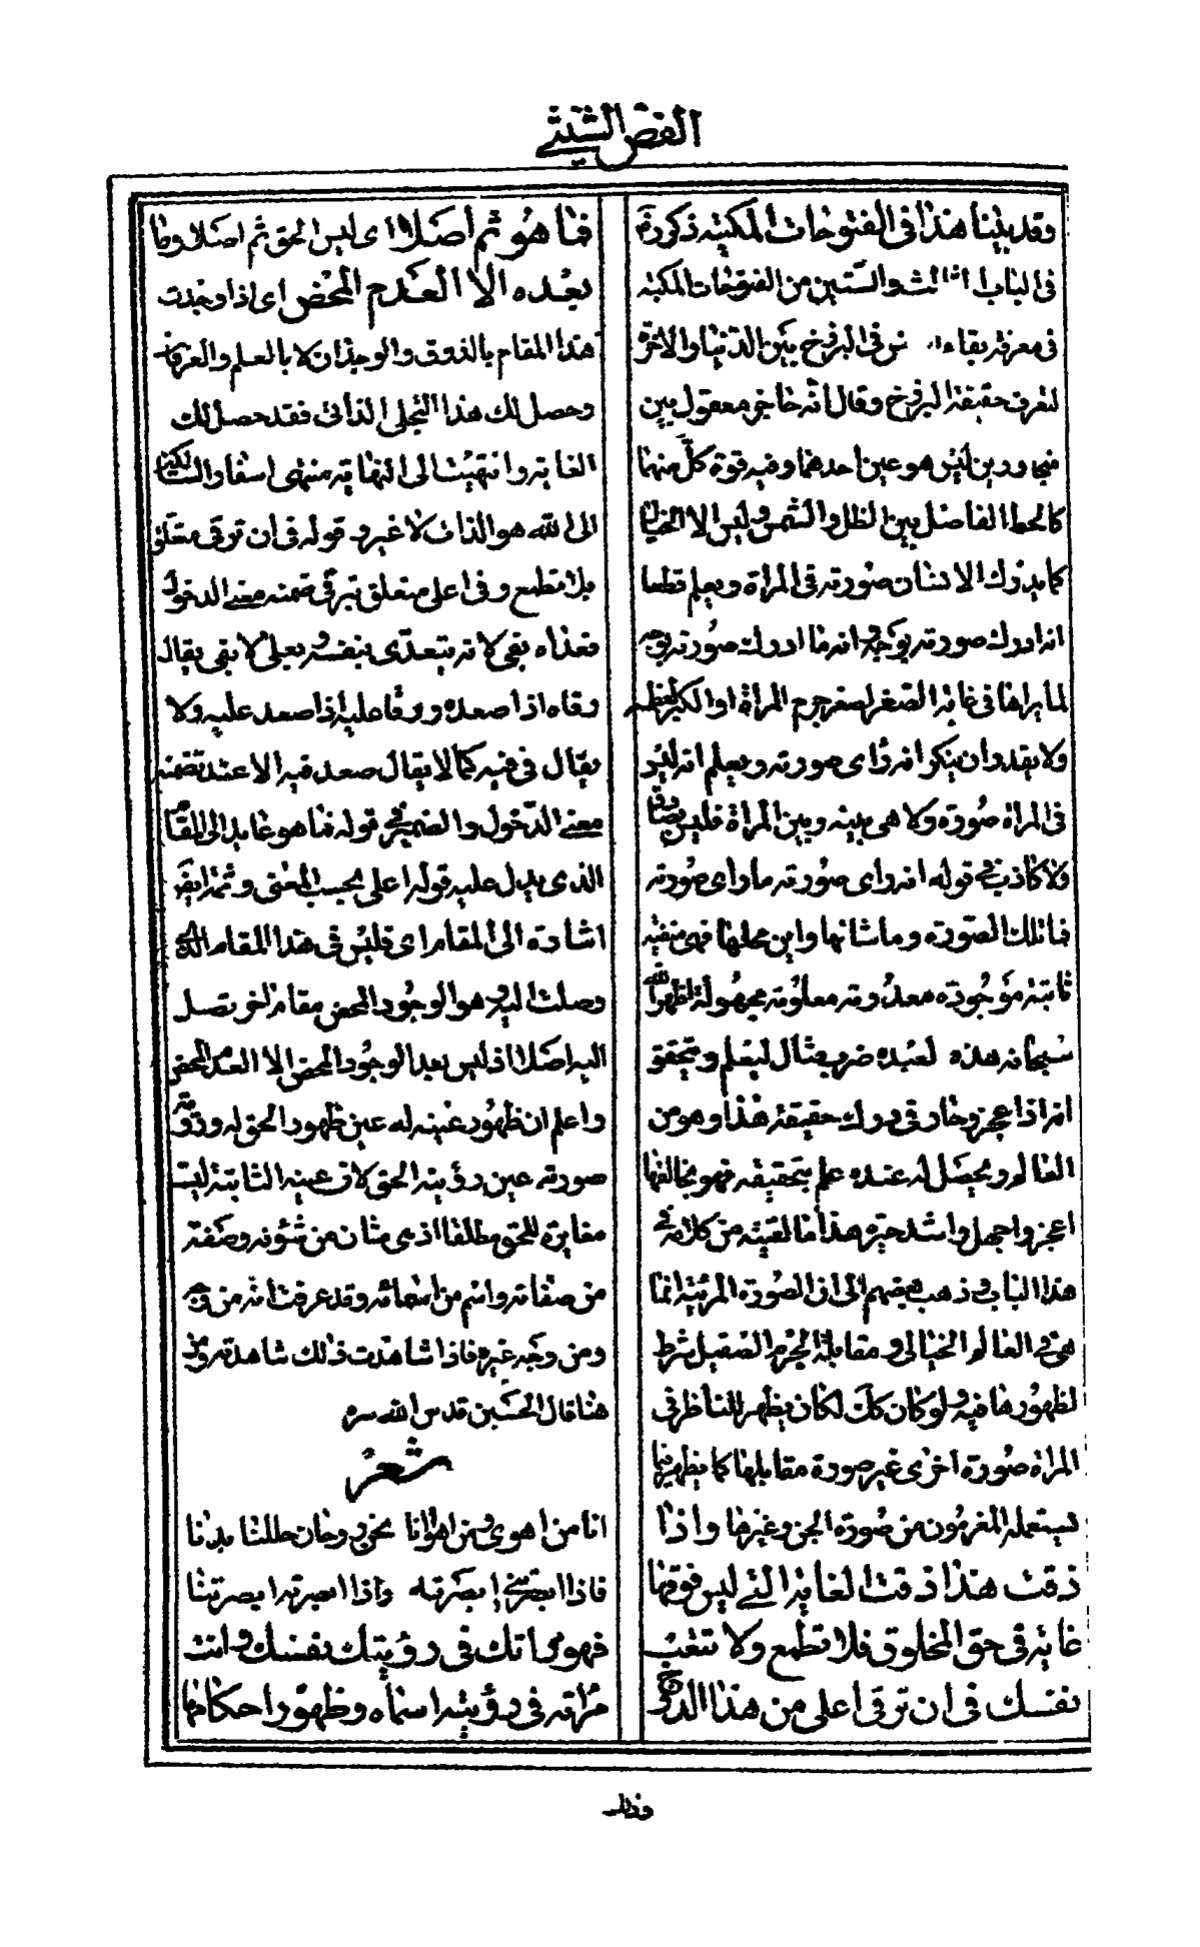 الفص الشيثي
وقد بينا هذا فى الفتوحات المكية ذكره
فى الباب الثالث والستين من الفتوحات المكية
فى معرفة بقاء فى البرزخ بين الدنيا والاخرة
لنعرف حقيقة البرزخ وقال انه حاجز معقول بين
متجاورين ليس هو عين احدهما وفيه قوة كل منهما
كالخط الفاصل بين الظل والشمس وليس الا الخيال
كما يدرك الانسان صورته فى المراة ويعلم قطعا
انه ادرك صورته بوجه وانه ما ادرك صورته بوجه
لما يراها فى غاية الصغر لصغر جرم المراة او الكبر لعظمه
ولا يقدر ان ينكر انه راى صورته ويعلم انه ليس
فى المراة صورة ولا هى بينه وبين المراة فليس بصادق
ولا كاذب فى قوله انه راى صورته ما راى صورته
فما تلك الصورة وما شانها واين محلها فهى منفية
ثابتة موجودة معدومة معلومة مجهولة اظهر الله
سبحانه هذه لعبده ضرب مثال ليعلم ويتحقق
انه اذا عجز وحار فى درك حقيقة هذا وهو من
العالم ويحصل له عنده علم بتحقيقه فهو بخالقها
اعجز واجهل واشد حيرة هذا ما لقيته من كلامه فى
هذا الباب وذهب بعضهم الى ان الصورة المرئية انما
هى فى العالم الخيالى ومقابلة الجرم الصقيل شرط
لظهورها فيه ولو كان كك لكان يظهر للناظر فى
المراة صورة اخرى غير صورة مقابلها كما يظهر فيما
يستعمله المغربون من صورة الجن وغيرها واذا
ذقت هذا ذقت الغاية التى ليس فوقها
غاية فى حق المخلوق فلا تطمع ولا تتعب
نفسك فى ان ترقى اعلى من هذا الدرج
فما هو ثم اصلا اى ليس الحق ثم اصلا وما
بعده الا العدم المحض اى اذا وجدت
هذا المقام بالذوق والوجدان لا بالعلم والعرفان
وحصل لك هذا التجلى الذاتى فقد حصل لك
الغاية وانتهيت الى النهاية منتهى اسفار السالكين
الى الله هو الذات لا غير وقوله فى ان ترقى متعلق
بلا تطمع وفى اعلى متعلق بترقى ضمنه معنى الدخول
فعداه بفى لانه يتعدى بنفسه وبعلى لا بفى يقال
رقاه اذا صعده ورقا عليه اذا صعد عليه ولا
يقال رقى فيه كما لا يقال صعد فيه الا عند تضمنه
معنى الدخول والضمير فى قوله فما هو عايد الى المقام
الذى يدل عليه قوله اعلى بحسب المعنى وثمة ايضا
اشارة الى المقام اى فليس فى هذا المقام الذى
وصلت اليه وهو الوجود المحض مقام اخر تصل
اليه اصلا اذ ليس بعد الوجود المحض الا العدم المحض
واعلم ان ظهور عينه له عين ظهور الحق له ورؤية
صورته عين رؤية الحق لان عينه الثابتة ليست
مغايرة للحق مطلقا اذ هى شان من شئونه وصفة
من صفاته واسم من اسمائه وقد عرفت انه من وجه
ومن وجه غيره فاذا شاهدت ذلك شاهدته ومن
هنا قال الحسين قدس الله سره
شعر
انا من اهوى ومن اهوى انا نحن روحان حللنا بدنا
فاذا ابصرتنى ابصرته واذا ابصرته ابصرتنا
فهو مراتك فى رؤيتك نفسك وانت
مراته فى رؤيته اسماه وظهور احكامها